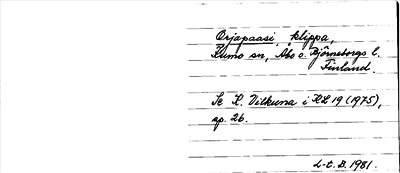 Orjapaasi, klippa,
Kumo sn, Åbo o. Björneborgs l.
Finland.
Se K. Vilkuna i KL 19 (1975),
sp. 26.
L-t. B. 1981.